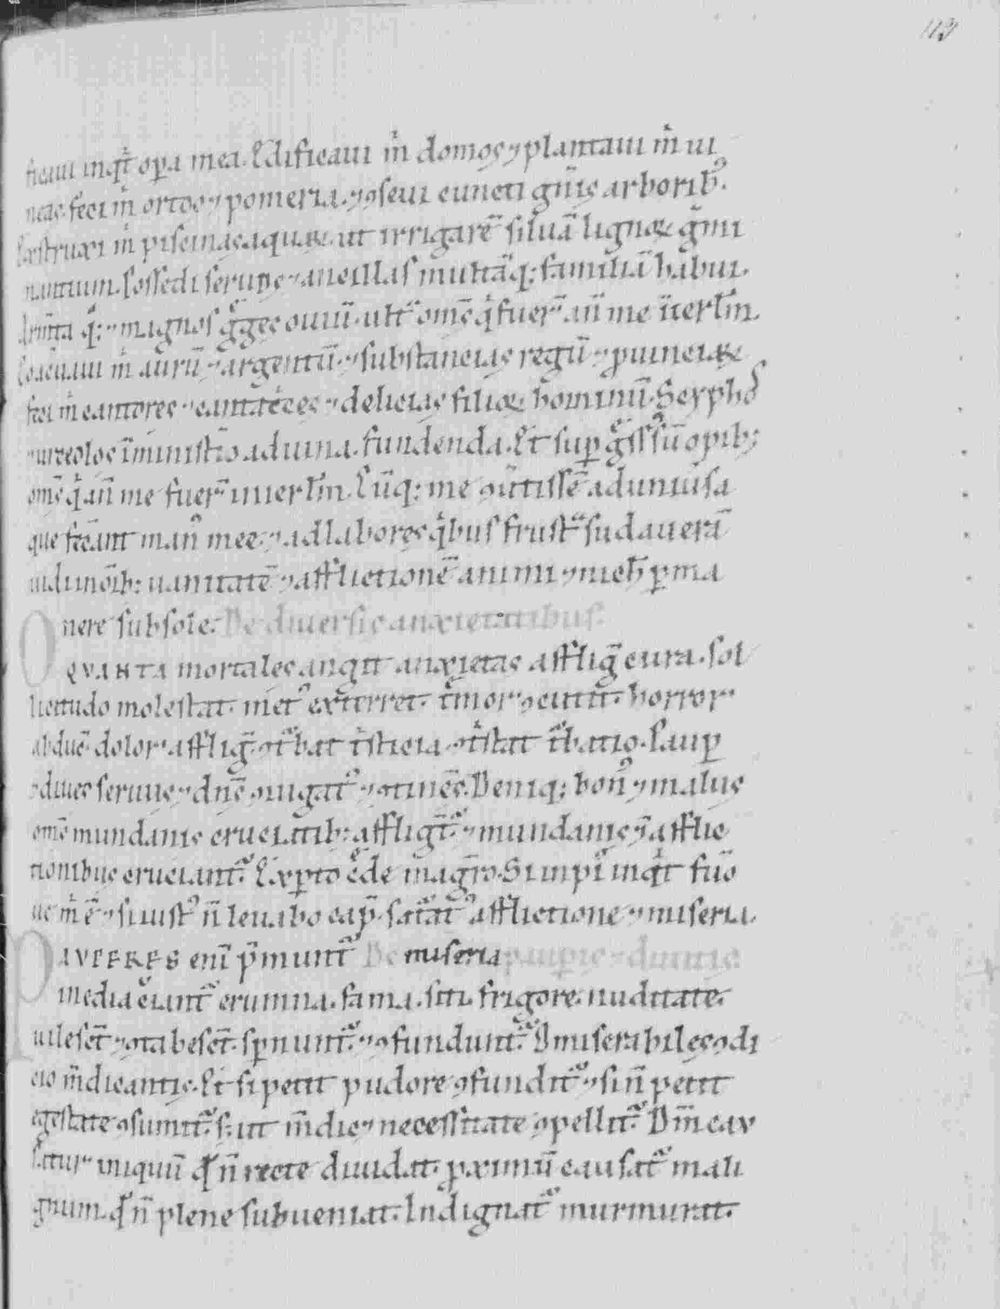 113
ficaui inq̇t oꝑa mea. Edificaui m̊ domos ⁊ plantaui m̊ ui
neas. feci m̊ ortos ⁊ pomeria. ⁊ ꝯseui cuncti gn̄is arborib⁹.
Exstruxi m̊ piscinas aquaꝝ. ut irrigarē siluā lignoꝝ ḡmi
nantium. Possedi seruos ⁊ ancillas multāq; familiā habui.
Armta q̄; ⁊ magnos g̊ges ouiū. ult̃ om̄s q̇ fuer̄ an̄ me ī ierl̄m.
Coaceruaui m̊ aurū ⁊ argentū. ⁊ substancias regū ⁊ ꝓuinciaꝝ
feci m̊ cantores ⁊ cantatrices ⁊ delicias filioꝝ hominū. Scyphos
urceolos ī ministrio ad uina fundenda. Et suꝑg̊ssus sū opib;
om̄s q̇ an̄ me fuer̄ in ierl̄m. Cūq; me ꝯu̇tissē ad uniu̇sa
que fecant man⁹ mee. ⁊ ad labores q̇bus frust̃ sudauerā
uidi in oīb; uanitatē ⁊ afflictionē animi ⁊ nich̄ ꝑma
nere sub sole. De diuersis anxietatibus.
O QVANTA mortales angit anxietas afflig̃ cura. sol
licitudo molestat. met⁹ extrret. t̊mor ꝯcutit. horror
abduc̄ dolor afflig̃. ꝯt̃bat t̊sticia. ꝯt̊stat t̃batio. Pauꝑ
⁊ diues seruus ⁊ dn̄s. ꝯiugat⁹ ⁊ ꝯtinēs. Deniq; bon⁹ ⁊ malus
om̄s mundanis cruciatib; affligt̃. ⁊ mundanis ⁊ afflic
tionibus cruciant̃. Exꝑto c̊de magr̄o. Si impi⁹ inq̇t fūo
ue m̊ ē. ⁊ si iust⁹ n̄ leuabo cap̄. sat̃at⁹ afflictione ⁊ miseria.
PAVPERES eni p̄munt̃ De miseria pauꝑis ⁊ diuitis
media c̊iant̃ erumna. fama. siti. frigore. nuditate.
uilesct̄ ⁊ ꝯtabesct̄. sꝑnunt̃. ⁊ ꝯfundunt̃. O miserabilis ꝯdi
cio m̄dicantis. Et si petit pudore ꝯfundit̃. ⁊ si n̄ petit
egestate ꝯsumit̃. s; ut m̄dic⁊ necessitate ꝯpellit̃. Dm̄ cau
satur iniquū qd̄ n̄ recte diuidat. ꝓximū causat̃ mali
gnum. qd̄ n̄ plene subueniat. Indignat̃ murmurat.